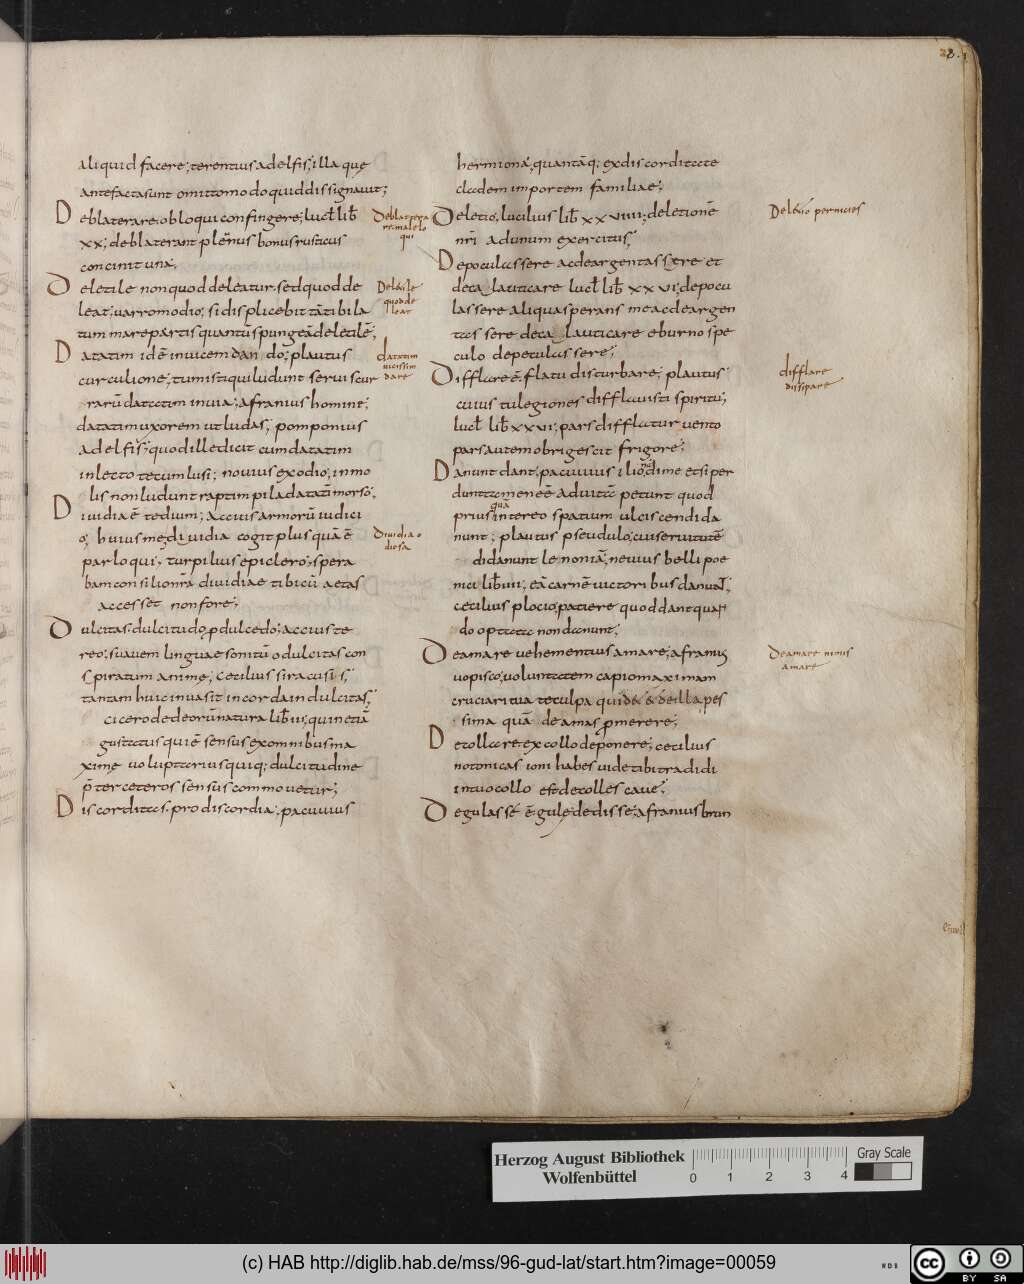 28.
aliquid facere; terentius adelfis; illa quę
antefacta sunt omitto modo quid dissignauit;
Deblaterare; obloqui confingere; lucl̄ lib̄
xx; deblaterant plenus bonus rusticus
concinit una;
Deletile non quod deleatur. sed quod de
leat; uarro modio; si displicebit tā tibi la
tum mare partis quantū spungeā deletilē;
Datatim idē inuicem dan do; plautus
curculione; tum isti qui ludunt serui scur
rarū datatim in uia; afranius homine;
datatim uxorem ut ludas; pomponius
adelfis; quod ille dicit cum datatim
in lecto tecum lusi; nouius exodio; in mo
lis non ludunt raptim pila datatī morso;
Diuidia ē tedium; accius armorū iudici
o; huius me diuidia cogit plus quā ē
par loqui; turpilius epiclero; spera
bam consilio nrā diuidiae tibi cū aetas
accesset non fore;
Dulcitas; dulcitudo, p dulcedo; accius te
reo; suauem linguae sonitū o dulcitas con
spiratum anime; cecilius siracusi s;
tantam huic inuasit in cor dain dulcitas;
cicero de deorū natura lib̄ iii; quin etiā
gustatus qui ē sensus ex omnibus ma
xime uoluptarius quiq; dulcitudine
p̄ter ceteros sensus commouetur;
Discorditas. pro discordia; pacuuius
Deblatpera
re male lo
qui
Deletile
quod de
leat
datatim
uicissim
dare
Diuidia o
diosa
hermiona; quantāq; ex discorditate
cladem importem familiae;
Deletio, lucilius lib̄ xxviiii; deletionē
nr̄i ad unum exercitus;
Depoculassere ac deargentassere et
decalauticare lucl̄ lib̄ xxvi; depocu
lassere aliqua sperans me ac deargen
tas sere decalauticare eburno spe
culo depeculas sere;
Difflare ē. flatu disturbare; plautus
cuius tu legiones difflauisti spiritu;
lucl̄ lib̄ xxvi; pars difflatur uento
pars autem obrigescit frigore;
Danunt dant; pacuuius iliod̄ime etsi per
dunt cameneē aduitā petunt quod
quā
prius in tereo spatium ulciscendi da
nunt; plautus pseudulo; cui seruitutē
di danunt lenoniā; neuius belli poe
nici lib̄ uii; eā carnē uictoribus danunt;
cecilius plocio; patiere quod dant quan
do optata non danunt;
Deamare uehementius amare; afranius
uopisco; uoluntatem capio maximam
cruciari tua te culpa qui de & de illa pes
sima quā deamas promerere;
Decollare. ex collo deponere; cecilius
notonicas ioni habes uide tibi tradidi
in tuo collo est decolles caue;
Degulasse ē gule dedisse; afranius brun
Deletio pernicies
difflare
dissipare
Deamare nimis
amare
Herzog August Bibliothek
Wolfenbüttel
0 1 2 3 4
Gray Scale
(c) HAB http://diglib.hab.de/mss/96-gud-lat/start.htm?image=00059
WDB
cc BY SA